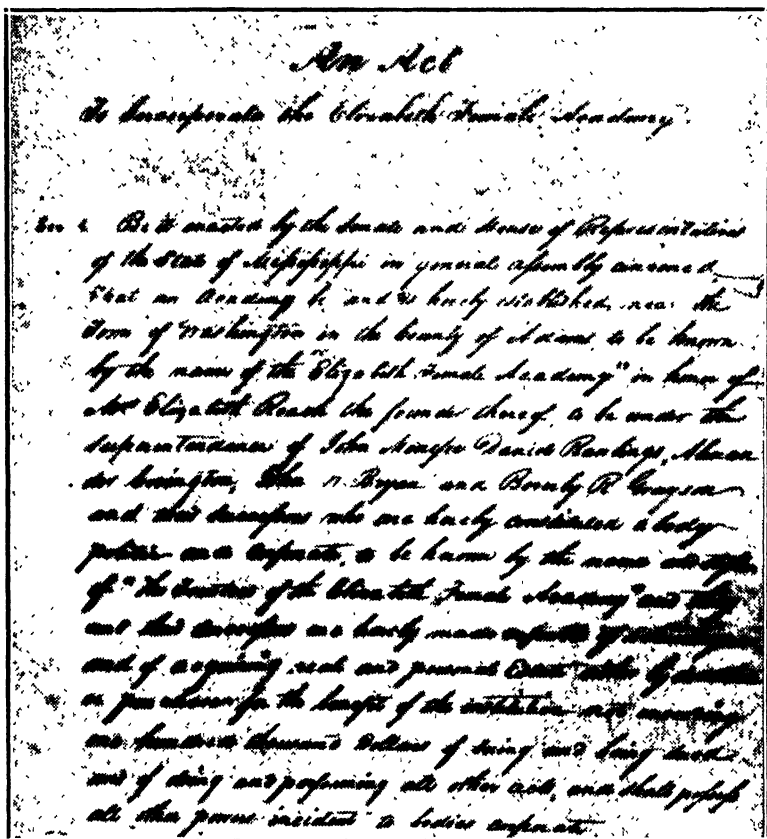 An Act
To Incorporate the Elizabeth Female Academy
Sec 1. Be it enacted by the Senate and House of Representatives
of the State of Mississippi in general assembly convened,
That an Academy be and is hereby established, near the
Town of Washington in the County of Adams, to be known
by the name of the "Elizabeth Female Academy" in honor of
Mrs Elizabeth Roach the founder thereof, to be under the
superintendance of John Menefee Daniel Rawlings, Alexan
der Covington, John N. Bryan and Beverly R Grayson
and their successors who are hereby constituted a body
politic and corporate, to be known by the name and style
of "The Trustees of the Elizabeth Female Academy" and they
and their successors are hereby made capable of
and of acquiring real and personal Estate either by donation
or purchase for the benefit of the institution not exceeding
one hundred thousand Dollars of suing and being sued
and of doing and performing all other acts, and shall possess
all other powers incident to bodies corporate.